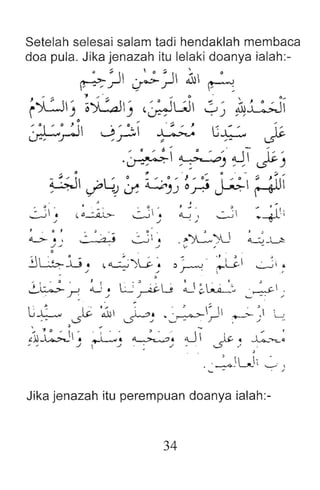 Setelah selesai salam tadi hendaklah membaca
doa pula. Jika jenazah itu lelaki doanya ialah:-
بسم الله الرحمن الرحيم
الحمد لله رب العالمين، والصلاة والسلام
على سيدنا محمد أشرف المرسلين
وعلى آله وصحبه أجمعين.
اللهم اجعل قبره روضة من رياض الجنة
اللهم أنت ربه وأنت خلقته، وأنت
هديته للإسلام. وأنت قبضت روحه
وأنت أعلم بسره وعلانيته، ولقد جئناك
راغبين شفعاء له فاغفر لنا وله برحمتك
يا أرحم الراحمين. وصلى الله على سيدنا
محمد وعلى آله وصحبه وسلم والحمد لله
رب العالمين.
Jika jenazah itu perempuan doanya ialah:-
34